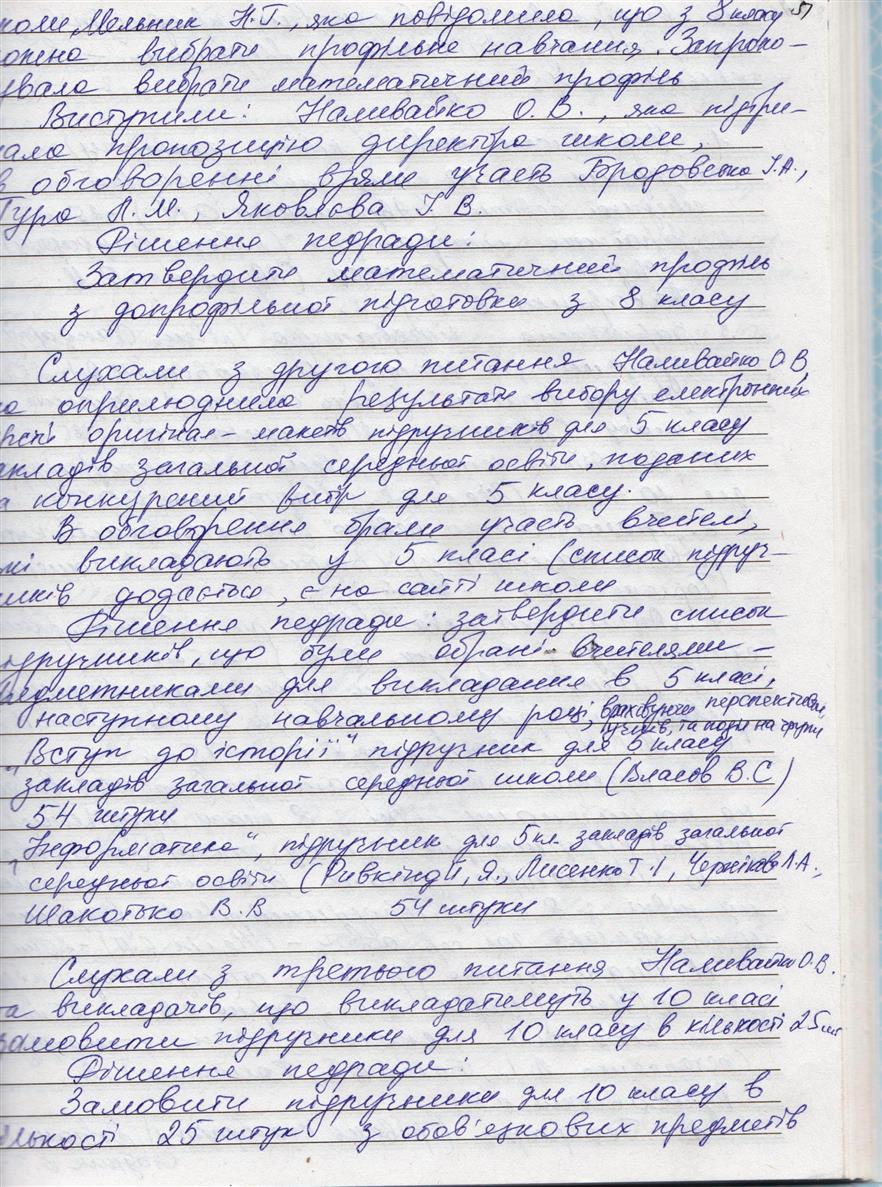 51
коли, Мельник Н.Г., яка повідомила, що з 8 класу
можна вибрати профільне навчання. Запропо-
увала вибрати математичний профіль
Виступили: Наливайко О.В., яка підтри-
мала пропозицію директора школи,
в обговоренні взяли участь Бродовська І.А.,
Гура Л.М., Яковлєва І.В.
Рішення педради:
Затвердити математичний профіль
з допрофільної підготовки з 8 класу
Слухали з другого питання Наливайко О.В,
ка оприлюднила результати вибору електронних
ерсій оригінал-макетів підручників для 5 класу
акладів загальної середньої освіти, поданих
а конкурсний вибір для 5 класу.
В обговоренні брали участь вчителі,
які викладають у 5 класі (список підруч-
ників додається, є на сайті школи
Рішення педради: затвердити список
ідручників, що були обрані вчителями-
редметниками для викладання в 5 класі,
наступному навчальному році, враховуючи перспективи,
учнів, та поділ на групи
"Вступ до історії" підручник для 5 класу
закладів загальної середньої школи (Власов В.С)
54 штуки
"Інформатика", підручник для 5 кл. закладів загальної
середньої освіти (Ривкінд Й.Я., Лисенко Т.І, Чернікова Л.А.,
Шакотько В.В 54 штуки
Слухали з третього питання Наливайко О.В.
та викладачів, що викладатимуть у 10 класі
замовити підручники для 10 класу в кількості 25 шт
Рішення педради:
Замовити підручники для 10 класу в
лькості 25 штук з обов'язкових предметів